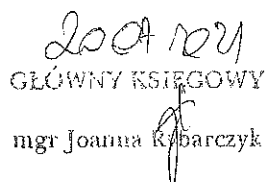 GŁÓWNY KSIĘGOWY
mgr Joanna Rybarczyk